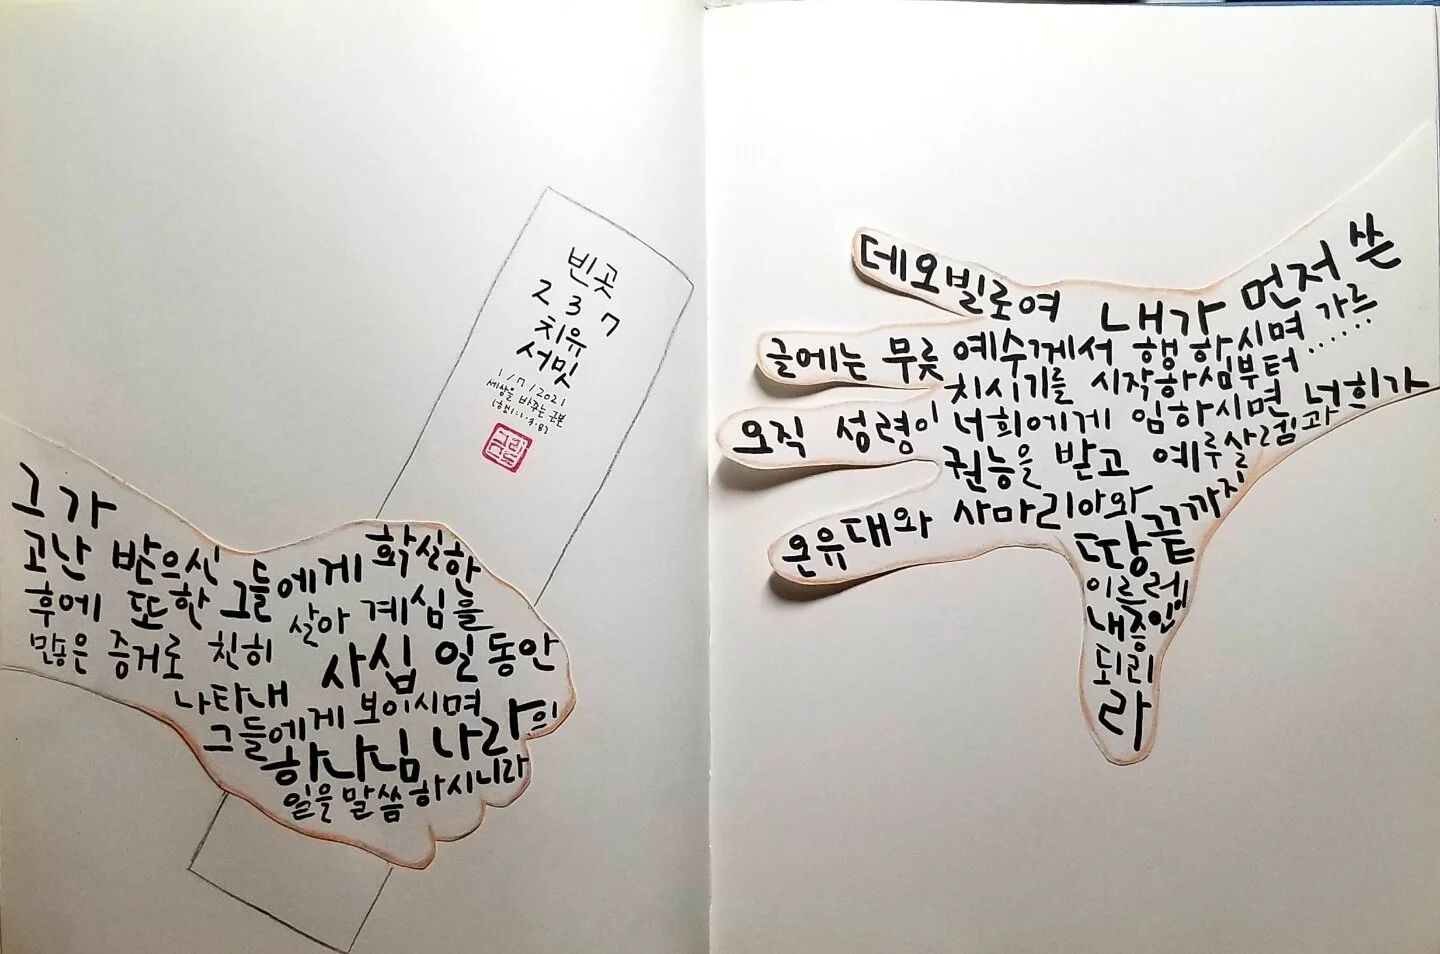 빈곳
2 3 7
치유
서밋
1/7/2021
세상을 바꾸는 근본
그가
고난 받으신
후에 또한 그들에게 확실한
많은 증거로 친히 살아 계심을
나타내 사십 일 동안
그들에게 보이시며
하나님 나라의
일을 말씀하시니라
데오빌로여 내가 먼저 쓴
글에는 무릇 예수께서 행하시며 가르
치시기를 시작하심부터......
오직 성령이 너희에게 임하시면 너희가
권능을 받고 예루살렘과
온유대와 사마리아와
땅끝까지
이르러
내 증인
되리
라